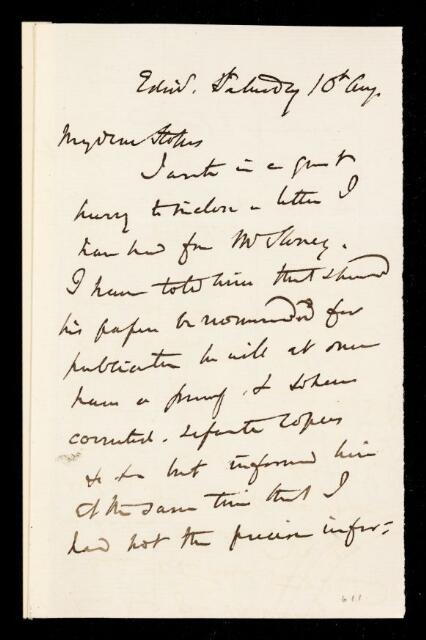 Edinb. Saturday 10th Aug.
My dear Stokes
I write in a great
hurry to inclose a letter I
have had from Mr Stoney.
I have told him that should
his paper be recommended for
publication he will at once
have a proof, & when
corrected, separate copies
& but informed him
at the same time that I
had not the precise infor-
611